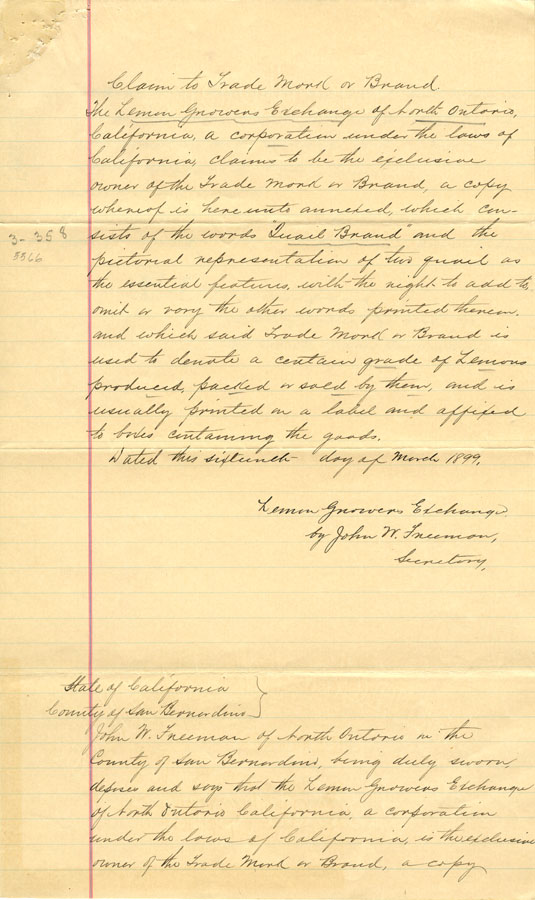 Claim to Trade Mark or Brand.
The Lemon Growers Exchange of North Ontario,
California, a corporation under the laws of
California, claims to be the exclusive
owner of the Trade Mark or Brand, a copy
whereof is here unto annexed, which con-
sists of the words "Quail Brand" and the
3-358
5566
pictorial representation of two quail as
the essential features, with the right to add to,
omit or vary the other words printed thereon.
and which said Trade Mark or Brand is
used to denote a certain grade of Lemons
produced, packed or sold by them, and is
usually printed on a label and affixed
to boxes containing the goods.
Dated this sixteenth day of March 1899.
Lemon Growers Exchange
by John W. Freeman,
Secretary.
State of California
County of San Bernardino
John W. Freeman of North Ontario in the
County of San Bernardino, being duly sworn,
deposes and says that the Lemon Growers Exchange
of North Ontario California, a corporation
under the laws of California, is the exclusive
owner of the Trade Mark or Brand, a copy